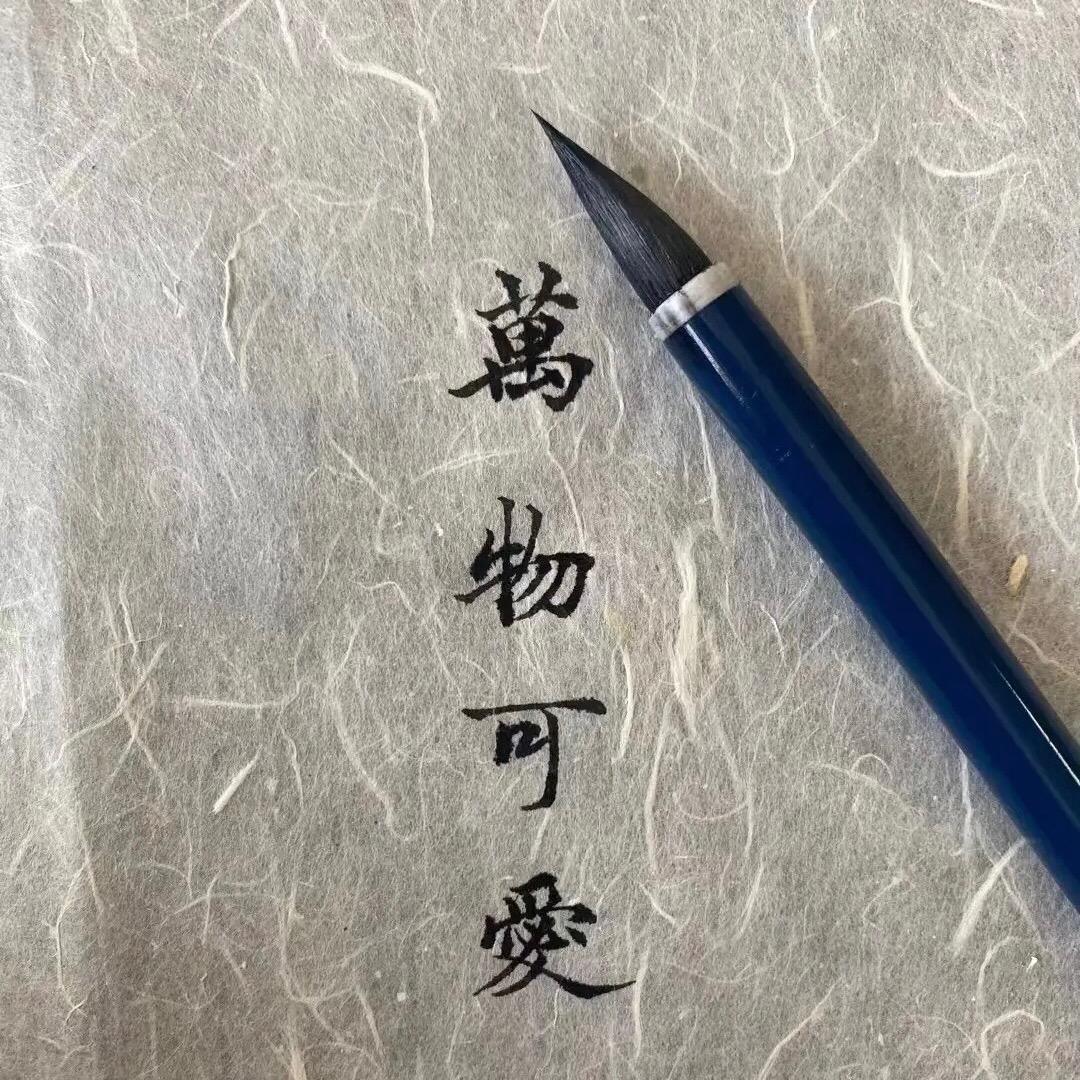 萬物可愛